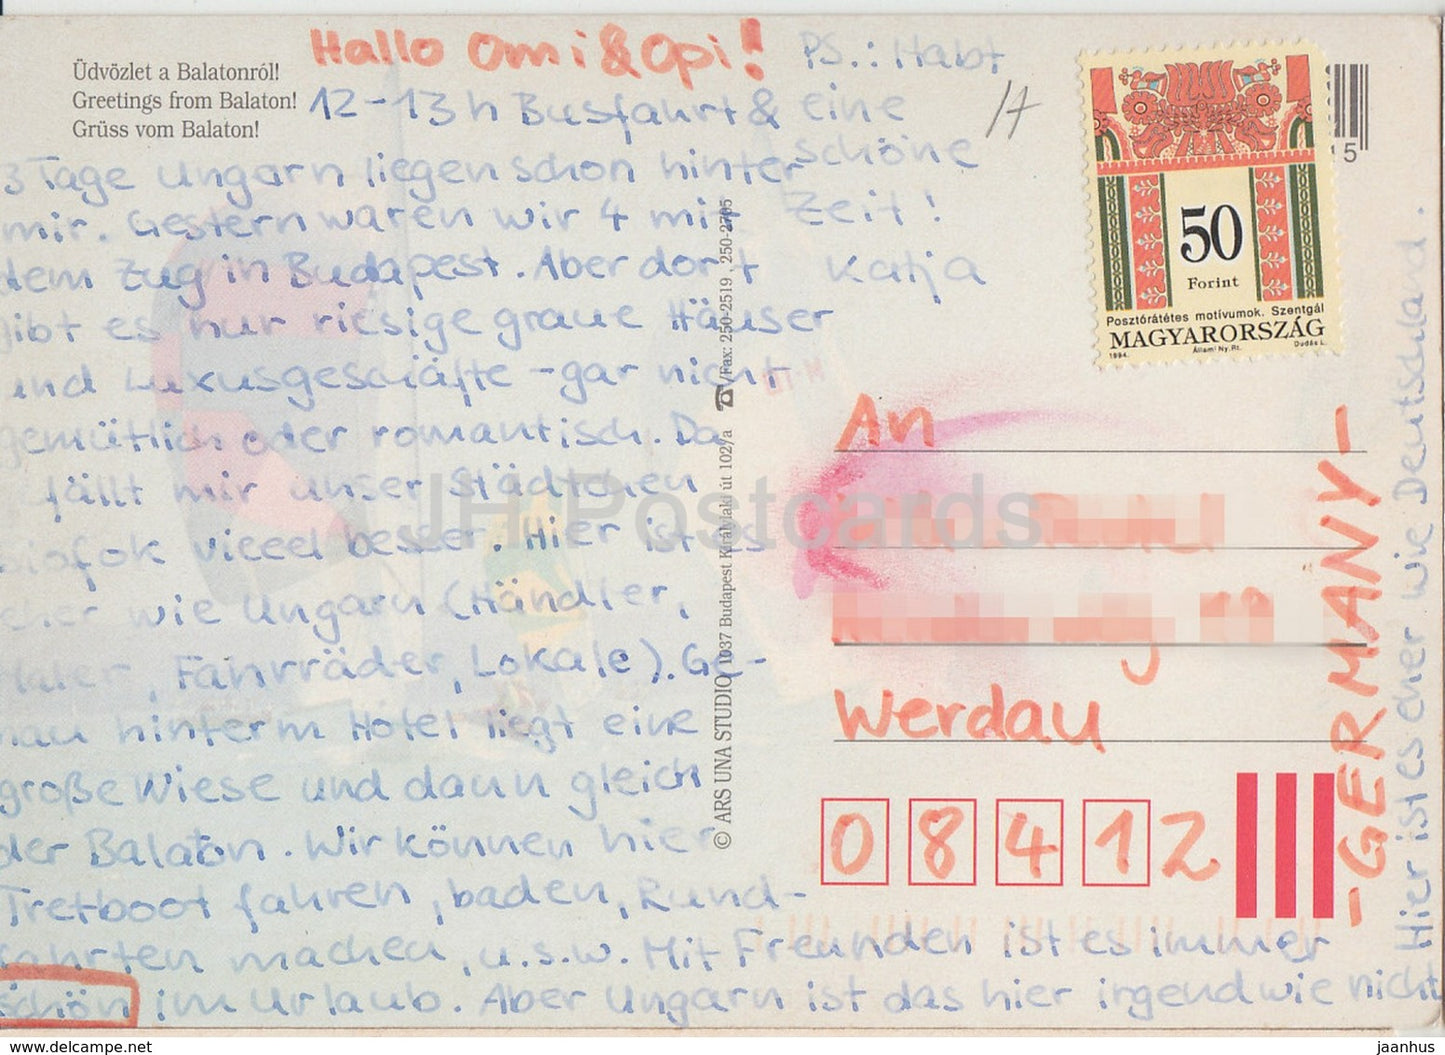 Üdvözlet a Balatonról!
Greetings from Balaton!
Grüss vom Balaton!
Hallo Omi & Opi!
12-13h Busfahrt &
3 Tage Ungarn liegen schon hinter
mir. Gestern waren wir 4 mit
dem Zug in Budapest. Aber dort
gibt es nur riesige graue Häuser
und Luxusgeschäfte - gar nicht
gemütlich oder romantisch. Da
fällt mir unser Städtchen
Siofok vieeel besser. Hier ist es
eher wie Ungarn (Händler,
Maler, Fahrräder, Lokale). Ge-
nau hinterm Hotel liegt eine
große Wiese und dann gleich
der Balaton. Wir können hier
Tretboot fahren, baden, Rund-
fahrten machen, u.s.w. Mit Freunden ist es immer
schön im Urlaub. Aber Ungarn ist das hier irgendwie nicht.
Hier ist es eher wie Deutschland.
PS.: Habt
eine
schöne
Zeit!
Katja
17
© ARS UNA STUDIO 1037 Budapest Királylaki út 102/a ☎/Fax: 250-2519, 250-2705
50
Forint
Posztórátétes motívumok. Szentgál
MAGYARORSZÁG
1994. Állami Ny. Rt. Dudás L.
15
An
Werdau
08412
-GERMANY-
JH Postcards
www.delcampe.net
jaanhus